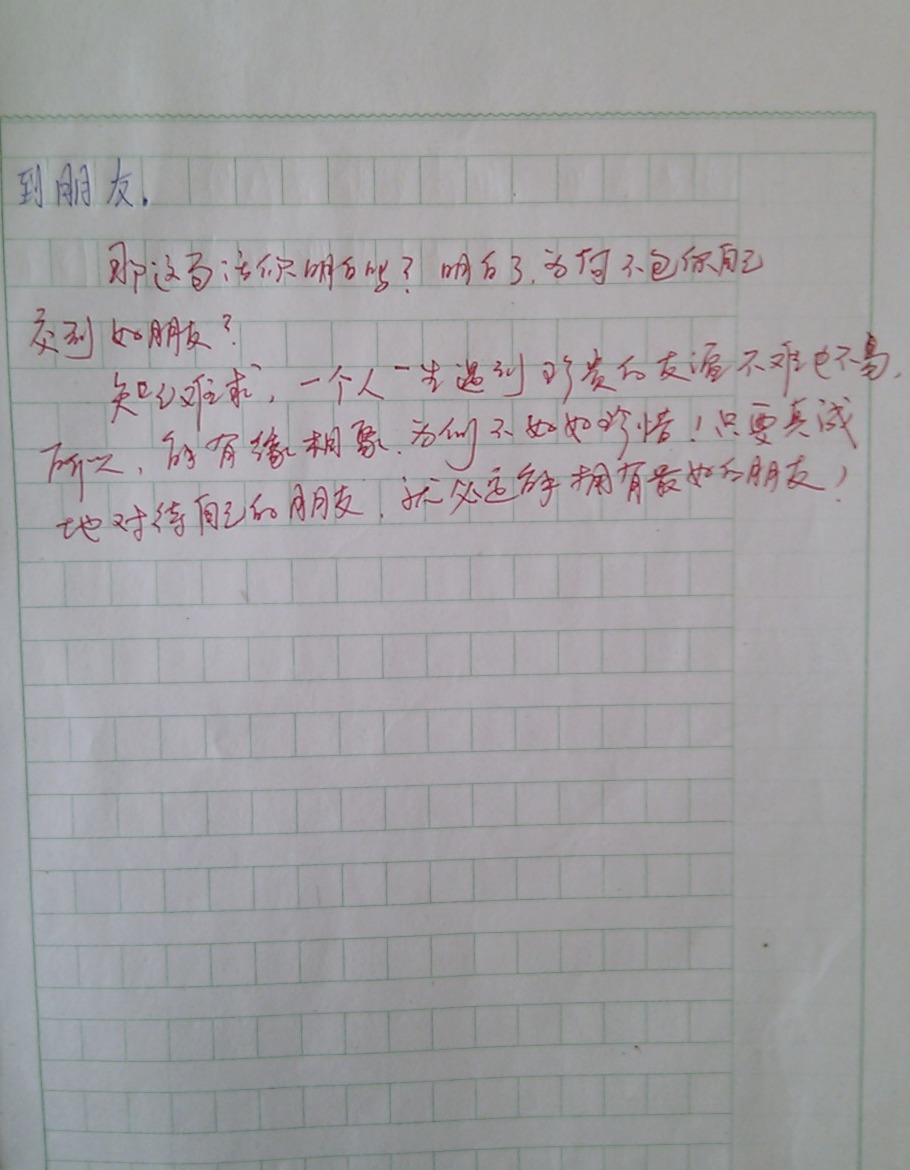 到朋友.
那这句话你明白吗?明白了,为何不让你自己
交到好朋友?
知己难求,一个人一生遇到珍贵的友谊不难也不易,
所以,能有缘相聚.为何不好好珍惜!只要真诚
地对待自己的朋友,就必运能拥有最好的朋友!